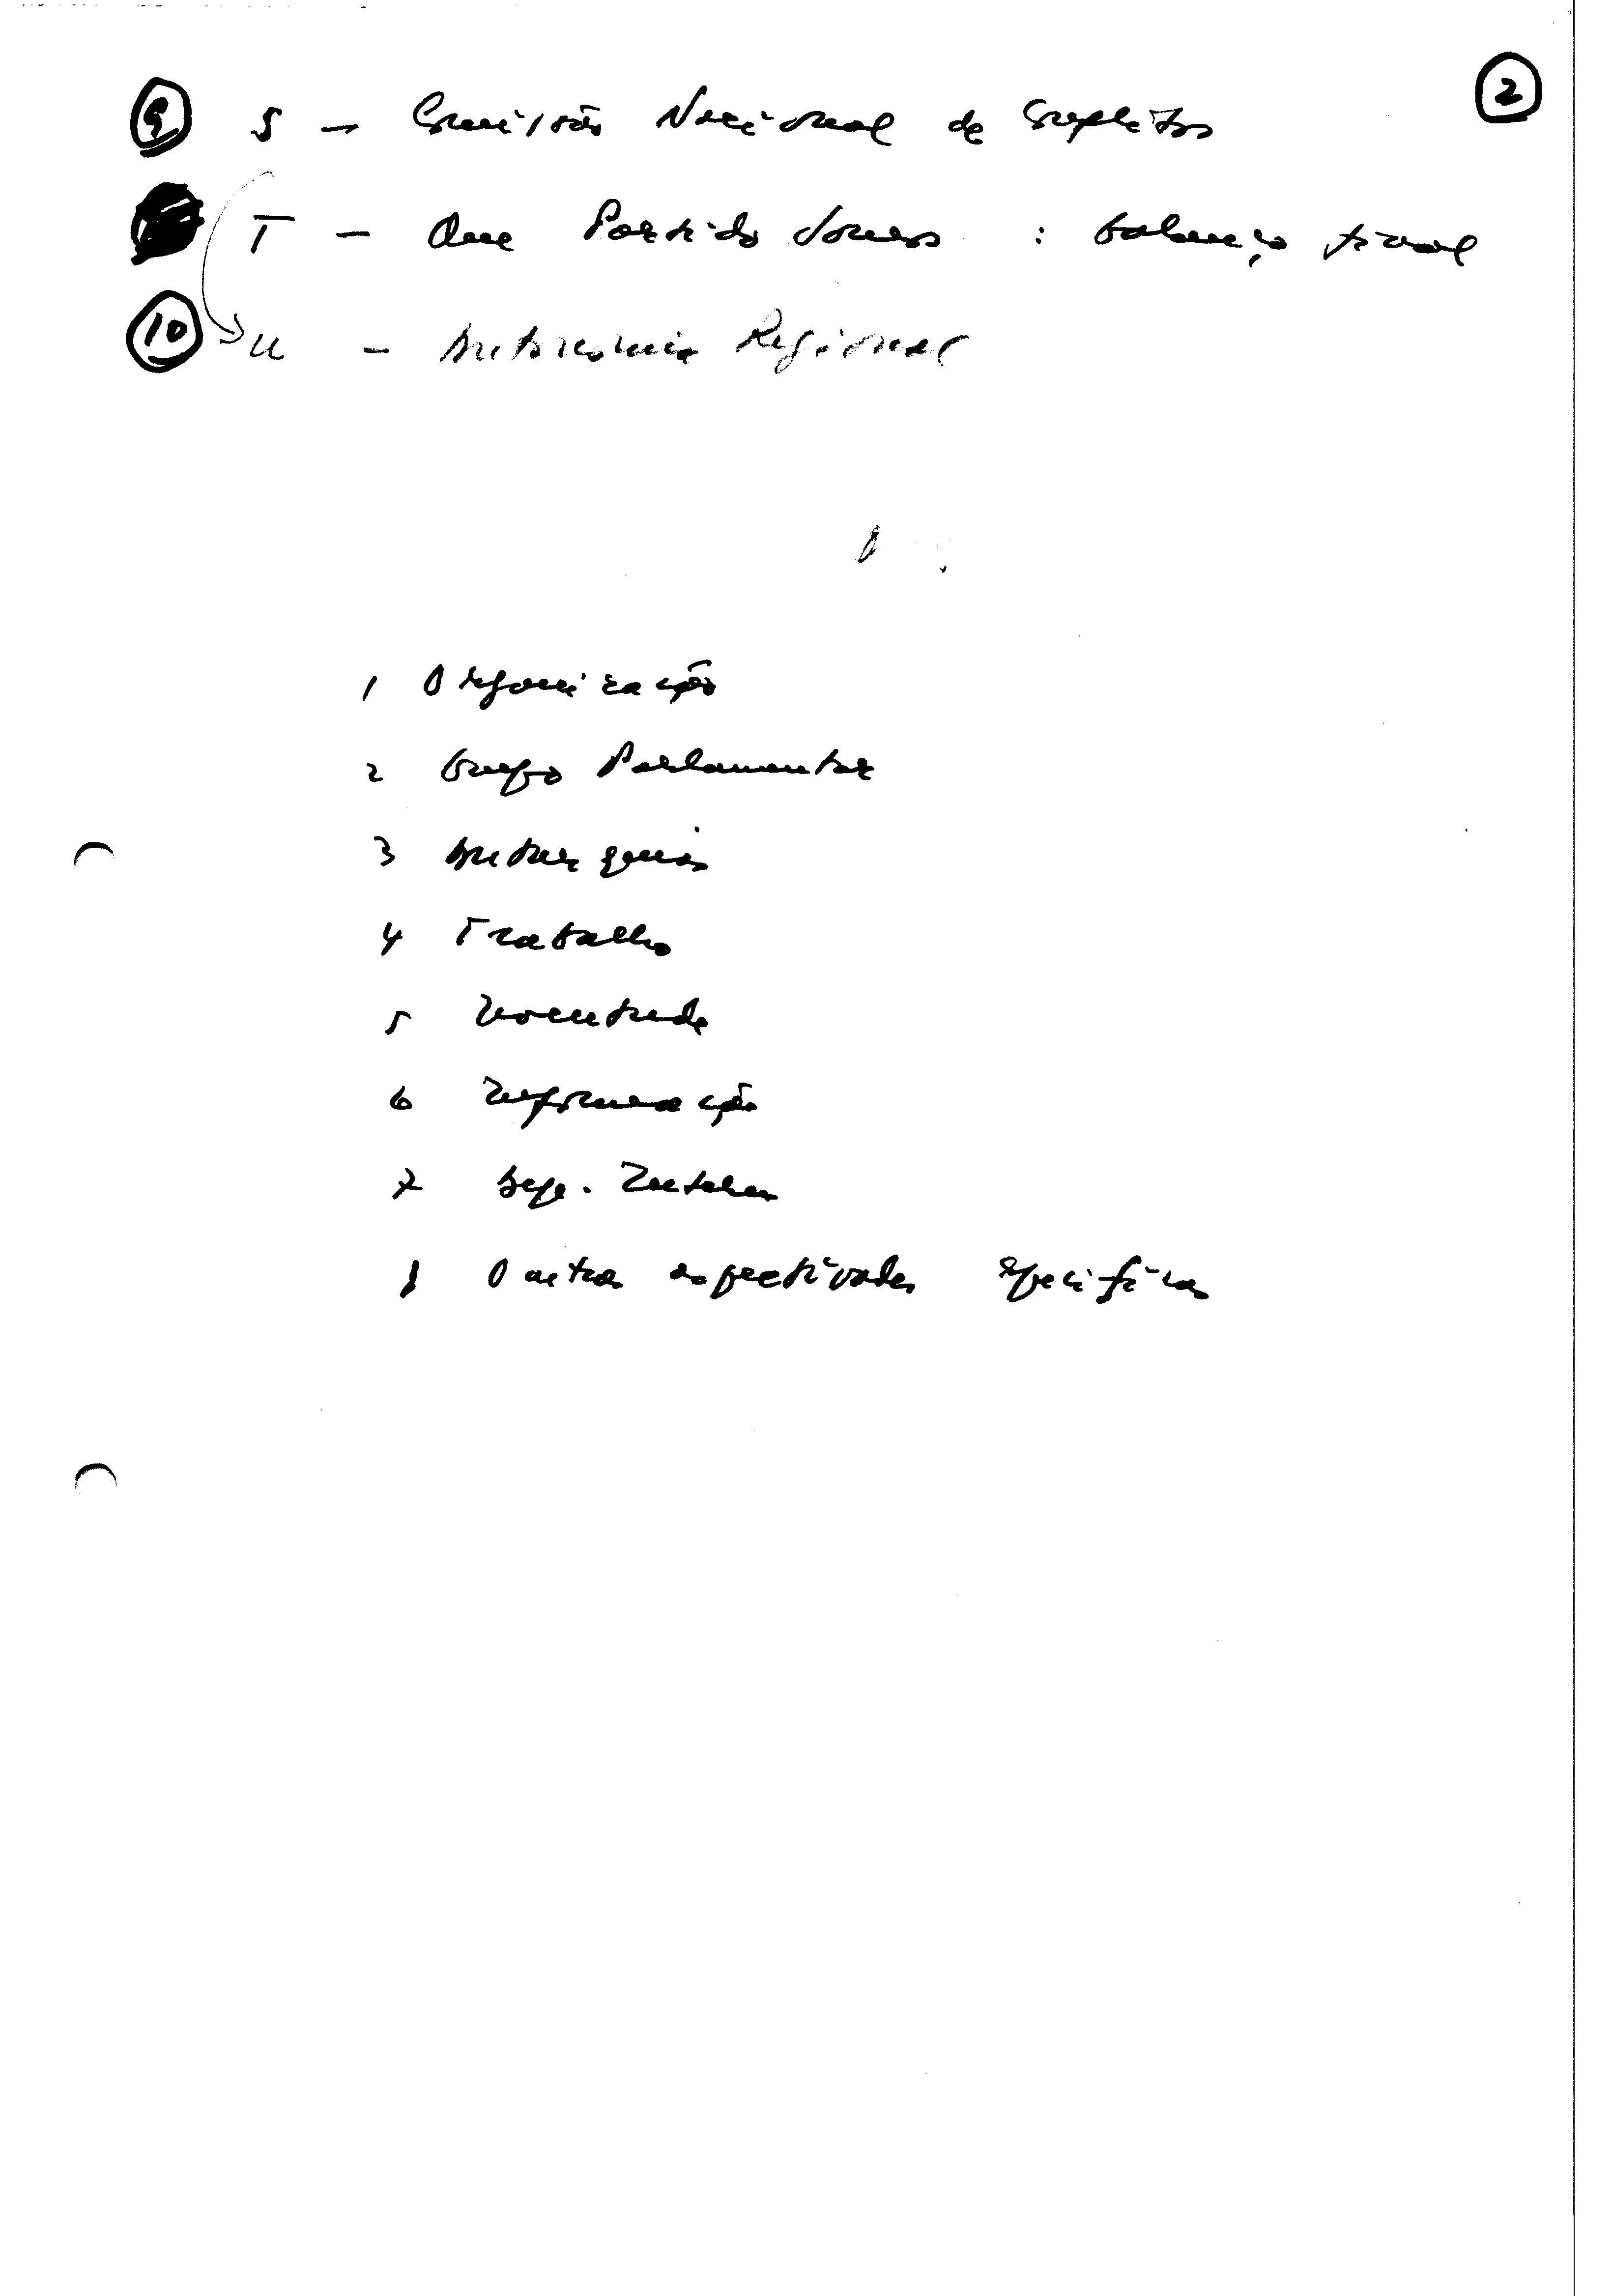 2
9 S - Comissão Nacional de Conflitos
T - Que Partido Somos : balanço final
10 U - Autonomia Regional
1 Organização
2 Grupo Parlamentar
3 Autarquias
4 Trabalho
5 Juventude
6 Informação
7 Internac
8 Outras específicas